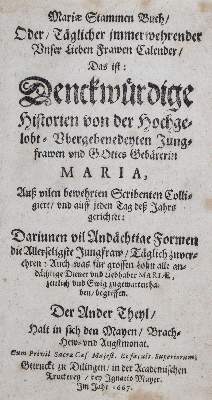 Mariæ Stammen Buch/
Oder/ Täglicher immerwehrender
Vnser Lieben Frawen Calender/
Das ist:
Denckwürdige
Historien von der Hochge-
lobt- Vbergebenedeyten Jung-
frawen vnd GOttes Gebärerin
MARIA,
Auß vilen bewehrten Scribenten Colli-
giert/ vnd auff jeden Tag deß Jahrs
gerichtet:
Darinnen vil Andächtige Formen
die Allerseligste Jungfraw/ Täglich zuver-
ehren: Auch was für grossen lohn alle an-
dächtige Diener vnd Liebhaber MARIÆ,
zeitlich vnd Ewig zugewarten ha-
ben/ begriffen.
Der Ander Theyl/
Halt in sich den Mayen/ Brach-
Hew- vnd Augstmonat.
Cum Privil. Sacræ Cæs. Majest. & Facult. Superiorum.
Getruckt zu Dilingen/ in der Academischen
Truckerey/ bey Ignatio Mayer.
Im Jahr 1667.